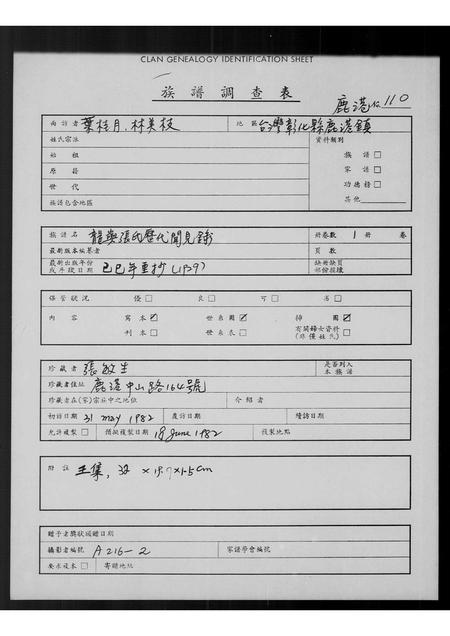 CLAN GENEALOGY IDENTIFICATION SHEET
族譜調查表
鹿港 No. 110
面訪者 葉桂月、林美枝 地區 台灣彰化縣鹿港鎮
姓氏宗派 資料類別
始祖 族譜 □
原籍 家譜 □
世代 功德榜 □
族譜包含地區 其他
族譜名 張氏歷代聞見錄 冊卷數 1 冊 卷
最新版本編纂者 頁數
最新出版年份 缺冊缺頁
或手段日期 己巳年重抄 部份損壞
保管狀況 優 □ 良 □ 可 □ 劣 □
內容 寫本 ☑ 世系圖 ☑ 像圖 ☑
刊本 □ 世系表 □ 有關婦女資料 □
(非僅姓氏)
珍藏者 張敏生 是否列入
本族譜
珍藏者住址 鹿港中山路164號
珍藏者在(家)宗族中之地位 介紹者
初訪日期 31 May 1982 複訪日期 續訪日期
允許複製 □ 預擬複製日期 18 June 1982 複製地點
附註 x 19.7 x 1.5 cm
贈予者獎狀頒贈日期
攝影者編號 A 216-2 家譜學會編號
要求複本 □ 寄贈地址